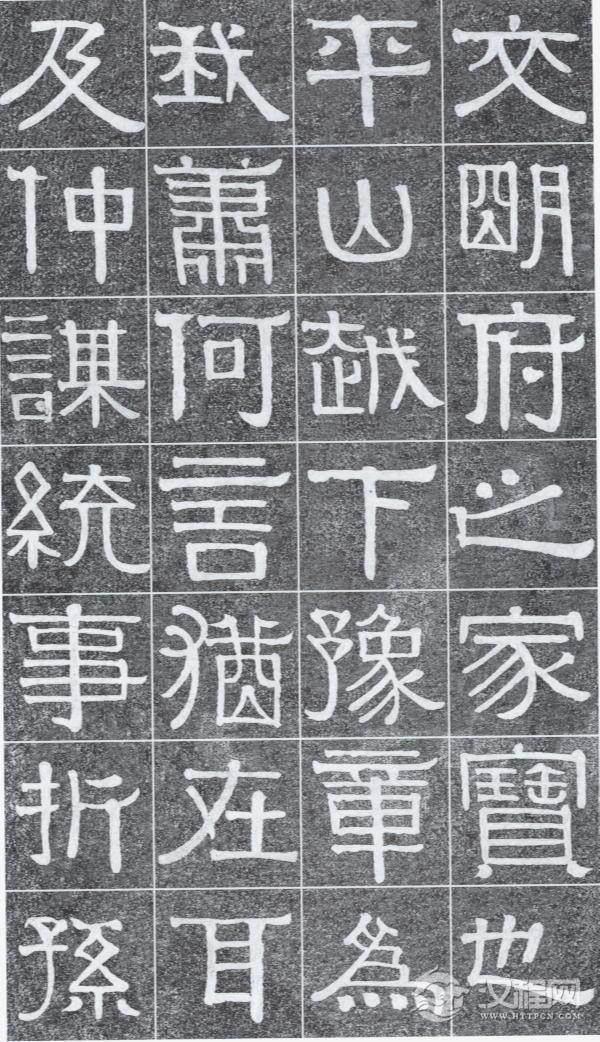 文朙府之家寶也
平山越下豫章為
我蕭何言猶在耳
及仲謀統事折孫
汉程网
WWW.HTTPCN.COM